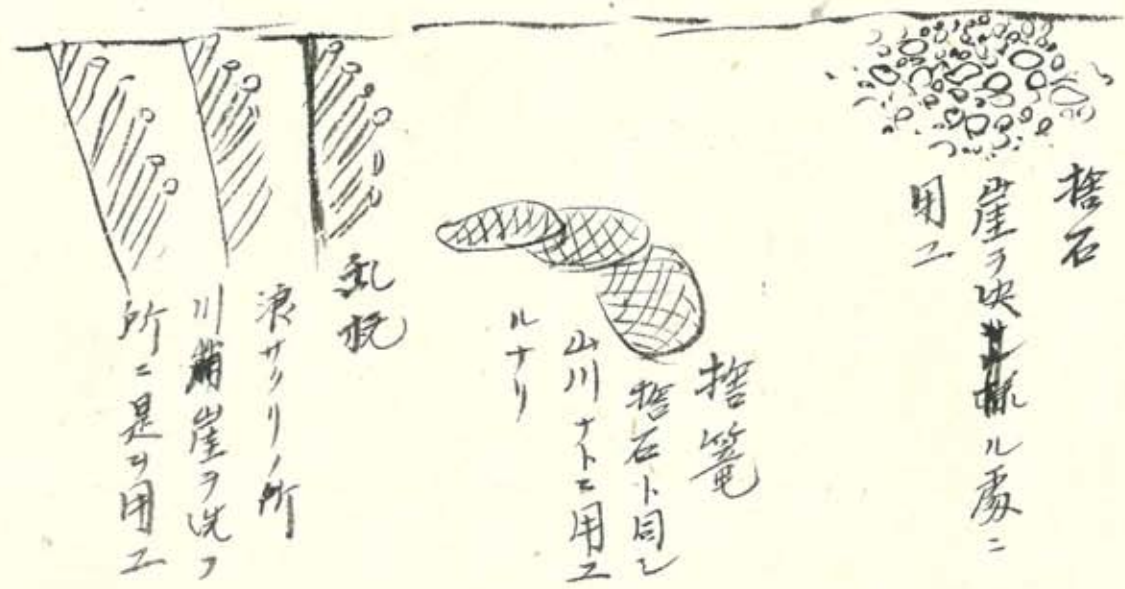 捨石
崖ヲ決ル處ニ
用ユ
捨篭
捨石ト同シ
山川ナトニ用ユ
ルナリ
乱杭
浪サクリノ所
川崖ヲ洗フ
所ニ是ヲ用ユ